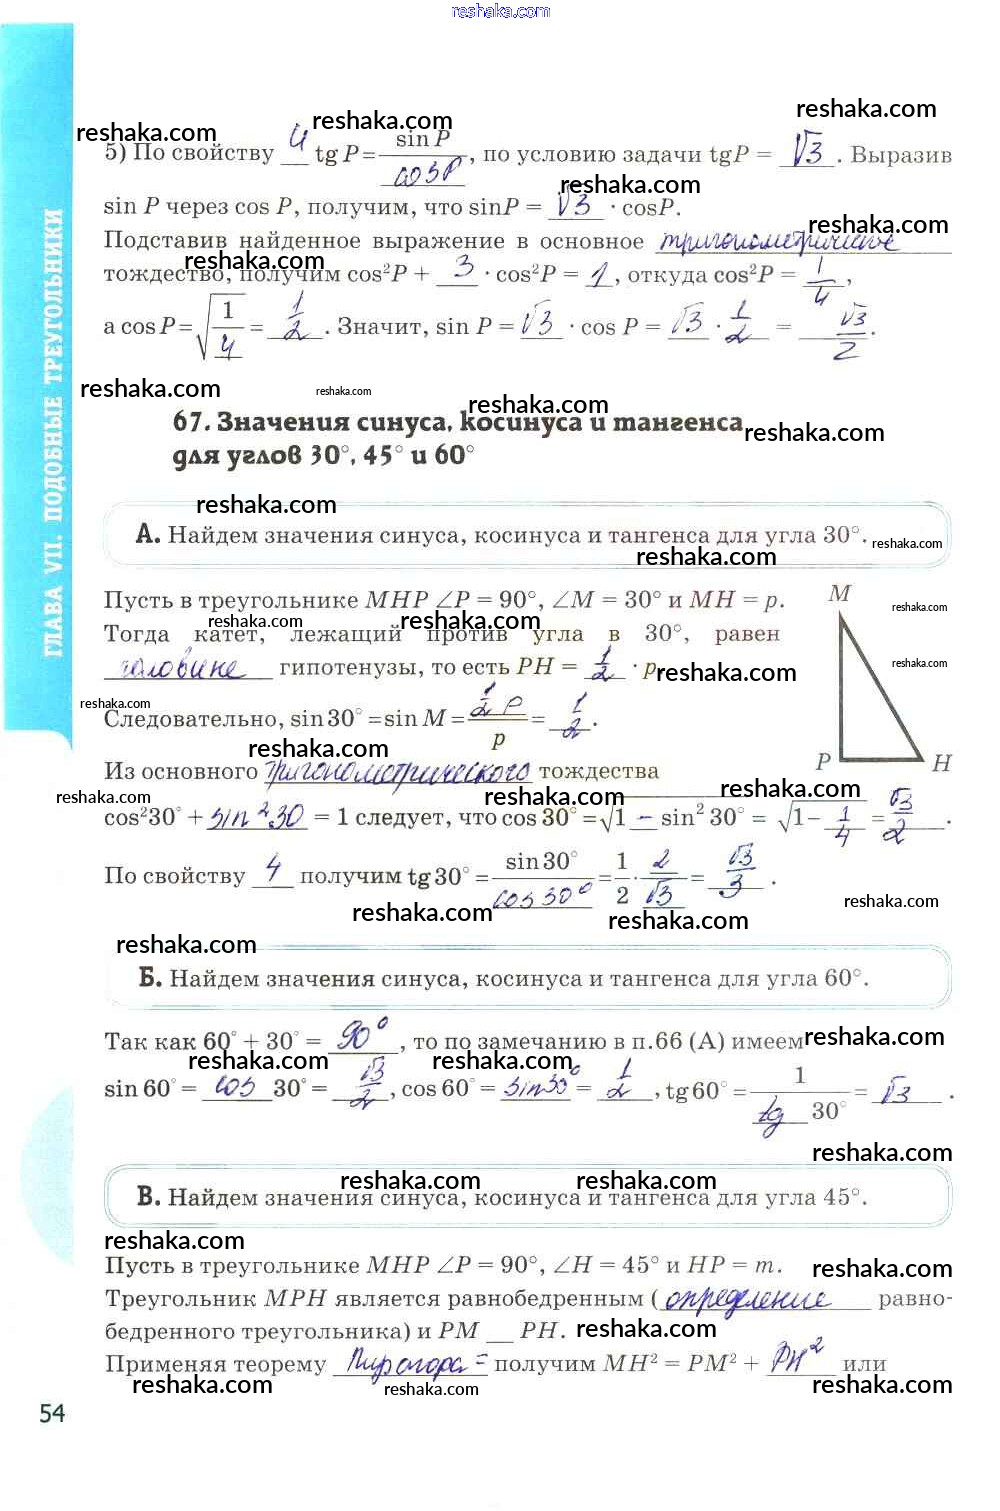 reshaka.com
reshaka.com
reshaka.com reshaka.com
5) По свойству 4 tg P = sin P / cos P, по условию задачи tgP = √3. Выразив
reshaka.com
sin P через cos P, получим, что sinP = √3 · cosP.
reshaka.com
Подставив найденное выражение в основное тригонометрическое
reshaka.com
тождество, получим cos²P + 3 · cos²P = 1, откуда cos²P = 1/4,
а cos P = √(1/4) = 1/2. Значит, sin P = √3 · cos P = √3 · 1/2 = √3/2.
reshaka.com reshaka.com reshaka.com
67. Значения синуса, косинуса и тангенса
reshaka.com
для углов 30°, 45° и 60°
reshaka.com
А. Найдем значения синуса, косинуса и тангенса для угла 30°.
reshaka.com reshaka.com
Пусть в треугольнике MHP ∠P = 90°, ∠M = 30° и MH = p.
M
reshaka.com
reshaka.com reshaka.com
Тогда катет, лежащий против угла в 30°, равен
половине гипотенузы, то есть PH = 1/2 · p
reshaka.com reshaka.com
reshaka.com
Следовательно, sin 30° = sin M = 1/2 p / p = 1/2.
reshaka.com
P H
Из основного тригонометрического тождества
reshaka.com reshaka.com reshaka.com
cos²30° + sin²30 = 1 следует, что cos 30° = √1 – sin² 30° = √1 – 1/4 = √3/2.
По свойству 4 получим tg 30° = sin 30° / cos 30° = 1/2 · 2/√3 = √3/3.
reshaka.com reshaka.com reshaka.com
reshaka.com
Б. Найдем значения синуса, косинуса и тангенса для угла 60°.
Так как 60° + 30° = 90°, то по замечанию в п.66 (А) имеем
reshaka.com
reshaka.com reshaka.com
sin 60° = cos 30° = √3/2, cos 60° = sin30° = 1/2, tg 60° = 1 / tg 30° = √3.
reshaka.com
reshaka.com reshaka.com
В. Найдем значения синуса, косинуса и тангенса для угла 45°.
reshaka.com
Пусть в треугольнике MHP ∠P = 90°, ∠H = 45° и HP = m.
reshaka.com
Треугольник MPH является равнобедренным (определение равно-
бедренного треугольника) и PM __ PH.
reshaka.com
Применяя теорему Пифагора = получим MH² = PM² + PH² или
reshaka.com reshaka.com reshaka.com
54
ГЛАВА VII. ПОДОБНЫЕ ТРЕУГОЛЬНИКИ